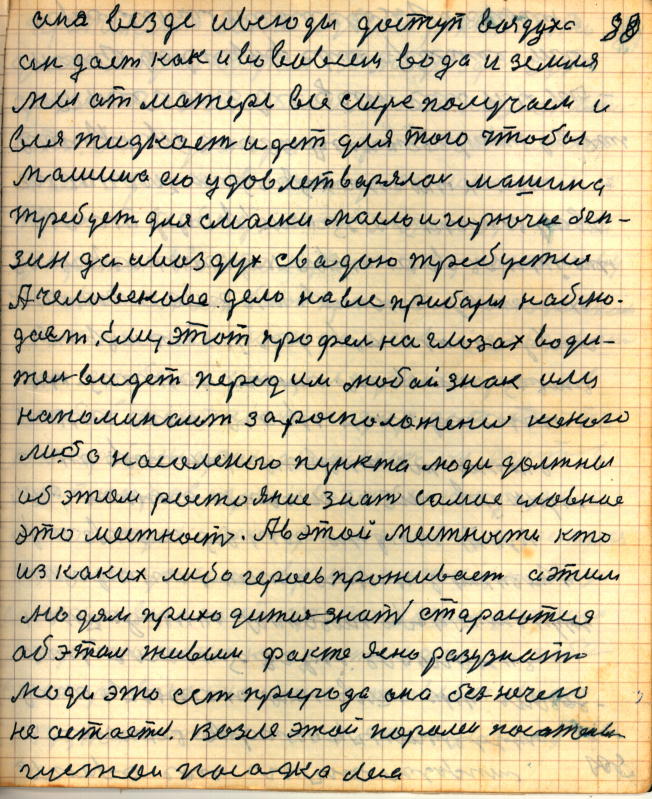 она везде и всюды доступ воздуха 38
он дает как и во вовсем вода и земля
мы от матери все сыре получаем и
вся жидкает идет для того чтобы
машина ею удовлетварялас машина
требует для смаски масло и горючие бен-
зин да и воздух свадою требуется
А человекова дело на все прибары наблю-
дает. Если этот профел на глозах води-
тел видет перед им любой знак или
напоминает за росположение какого
либо населеного пункта люди должны
об этом ростояние знат самое главное
это местност. А в этой местности кто
из каких либо героев проживает а этим
людям приходится знат стараются
об этам живым факте ясно разузнат
люди это ест природа она без нечего
не астается. Возле этой
густой посадка леса